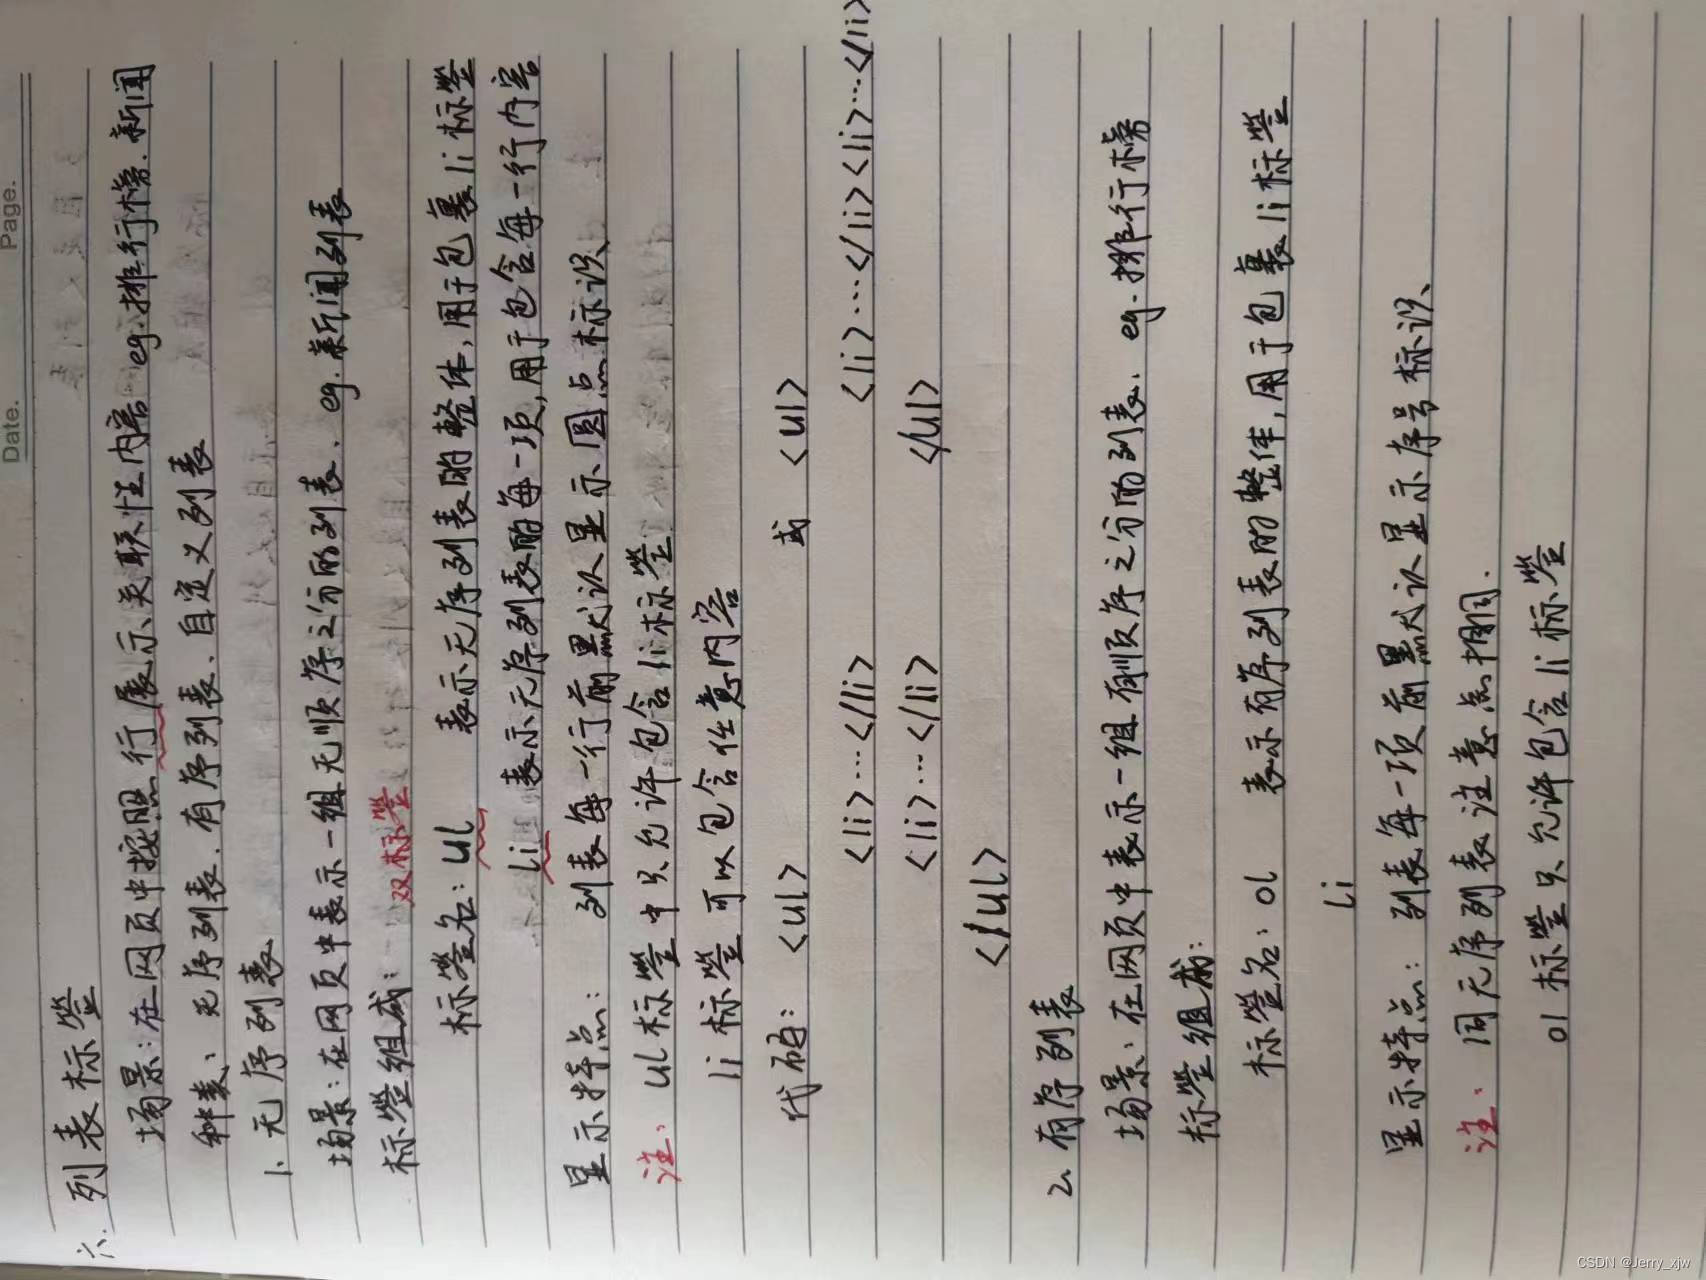 Date. Page.
六. 列表标签
场景:在网页中按照行展示关联性内容 eg.排行榜.新闻
种类、无序列表.有序列表、自定义列表
1、无序列表
场景:在网页中表示一组无顺序之分的列表、eg.新闻列表
标签组成: 双标签
标签名: ul 表示无序列表的整体,用于包裹li标签
li 表示无序列表的每一项,用于包含每一行内容
显示特点: 列表每一行前默认显示圆点标识、
注、 ul标签中只允许包含li标签
li标签可以包含任意内容
代码: <ul> 或 <ul>
<li>…</li> <li>…</li><li>…</li>
<li>…</li> </ul>
</ul>
2、有序列表
场景:在网页中表示一组有顺序之分的列表. eg.排行榜
标签组成:
标签名: ol 表示有序列表的整体,用于包裹li标签
li
显示特点: 列表每一项前默认显示序号标识、
注: 同无序列表注意点相同.
ol标签只允许包含li标签
CSDN @Jerry_xjw